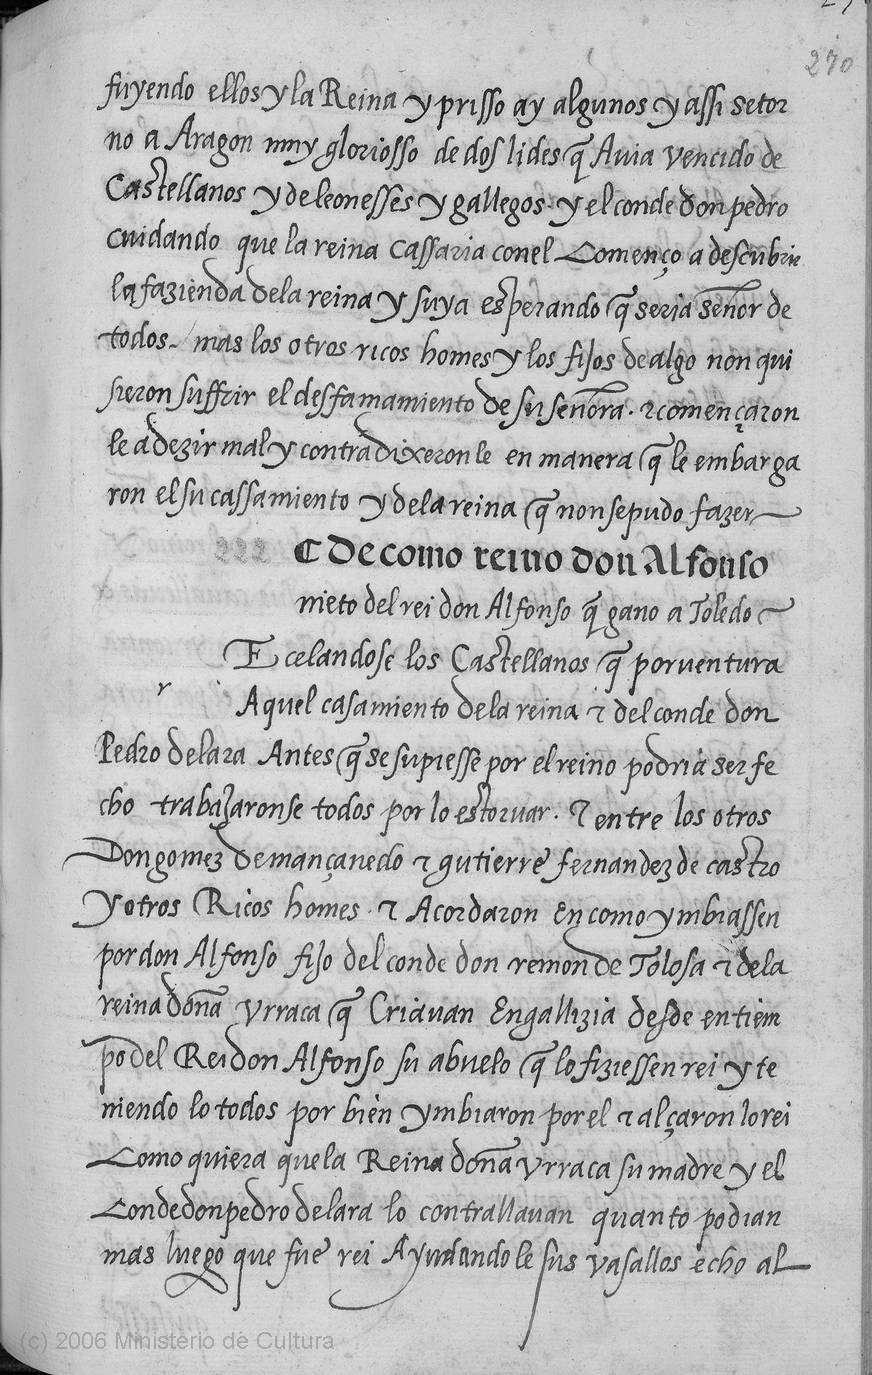 270
fuyendo ellos y la Reina y prisso ay algunos y assi setor
no a Aragon muy gloriosso de dos lides q̃ Auia vencido de
Castellanos y de leonesses y gallegos. y el conde don pedro
cuidando que la reina cassaria con el Començo a descubrir
la fazienda de la reina y suya esperando q̃ seria señor de
todos. mas los otros ricos homes y los fijos de algo non qui
sieron suffrir el desfamamiento de su señora. ⁊ començaron
le a dezir mal y contradixeron le en manera q̃ le embarga
ron el su cassamiento y de la reina q̃ non se pudo fazer
222 ¶ De como reino don Alfonso
nieto del rei don Alfonso q̃ gano a Toledo
r Ecelandose los Castellanos q̃ por ventura
Aquel casamiento de la reina ⁊ del conde don
Pedro de lara Antes q̃ se supiesse por el reino podria ser fe
cho trabajaronse todos por lo estoruar. ⁊ entre los otros
Don gomez de mançanedo ⁊ gutierre fernandez de castro
y otros Ricos homes. ⁊ Acordaron En como ymbiassen
por don Alfonso fijo del conde don remon de Tolosa ⁊ de la
reina doña vrraca q̃ Criauan En gallizia desde en tiem
po del Rei don Alfonso su abuelo q̃ lo fiziessen rei y te
niendo lo todos por bien ymbiaron por el ⁊ alçaron lo rei
Como quiera que la Reina doña vrraca su madre y el
Conde don pedro de lara lo contrallauan quanto podian
mas luego que fue rei Ayudandole sus vasallos echo al
(c) 2006 Ministerio de Cultura